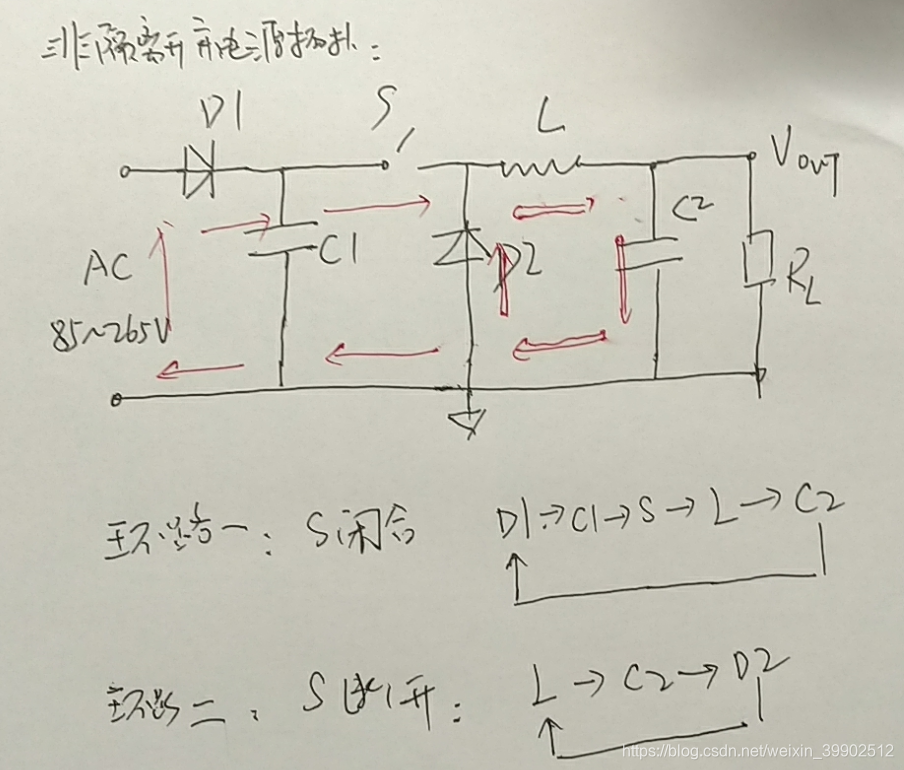 非隔离开关电源拓扑：
D1 S L
VOUT
C2
AC C1 D2
RL
85~265V
环路一：S闭合 D1→C1→S→L→C2
环路二：S断开：L→C2→D2
https://blog.csdn.net/weixin_39902512